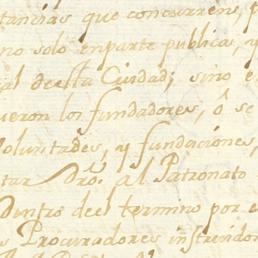 tancias que concurren, p
no solo enparte publica, y
al desta Ciudad; sino e
ueron los fundadores, ó se
voluntades, y fundaciones,
tar Dro. al Patronato
Dentro del termino por e
s Procuradores instruidor